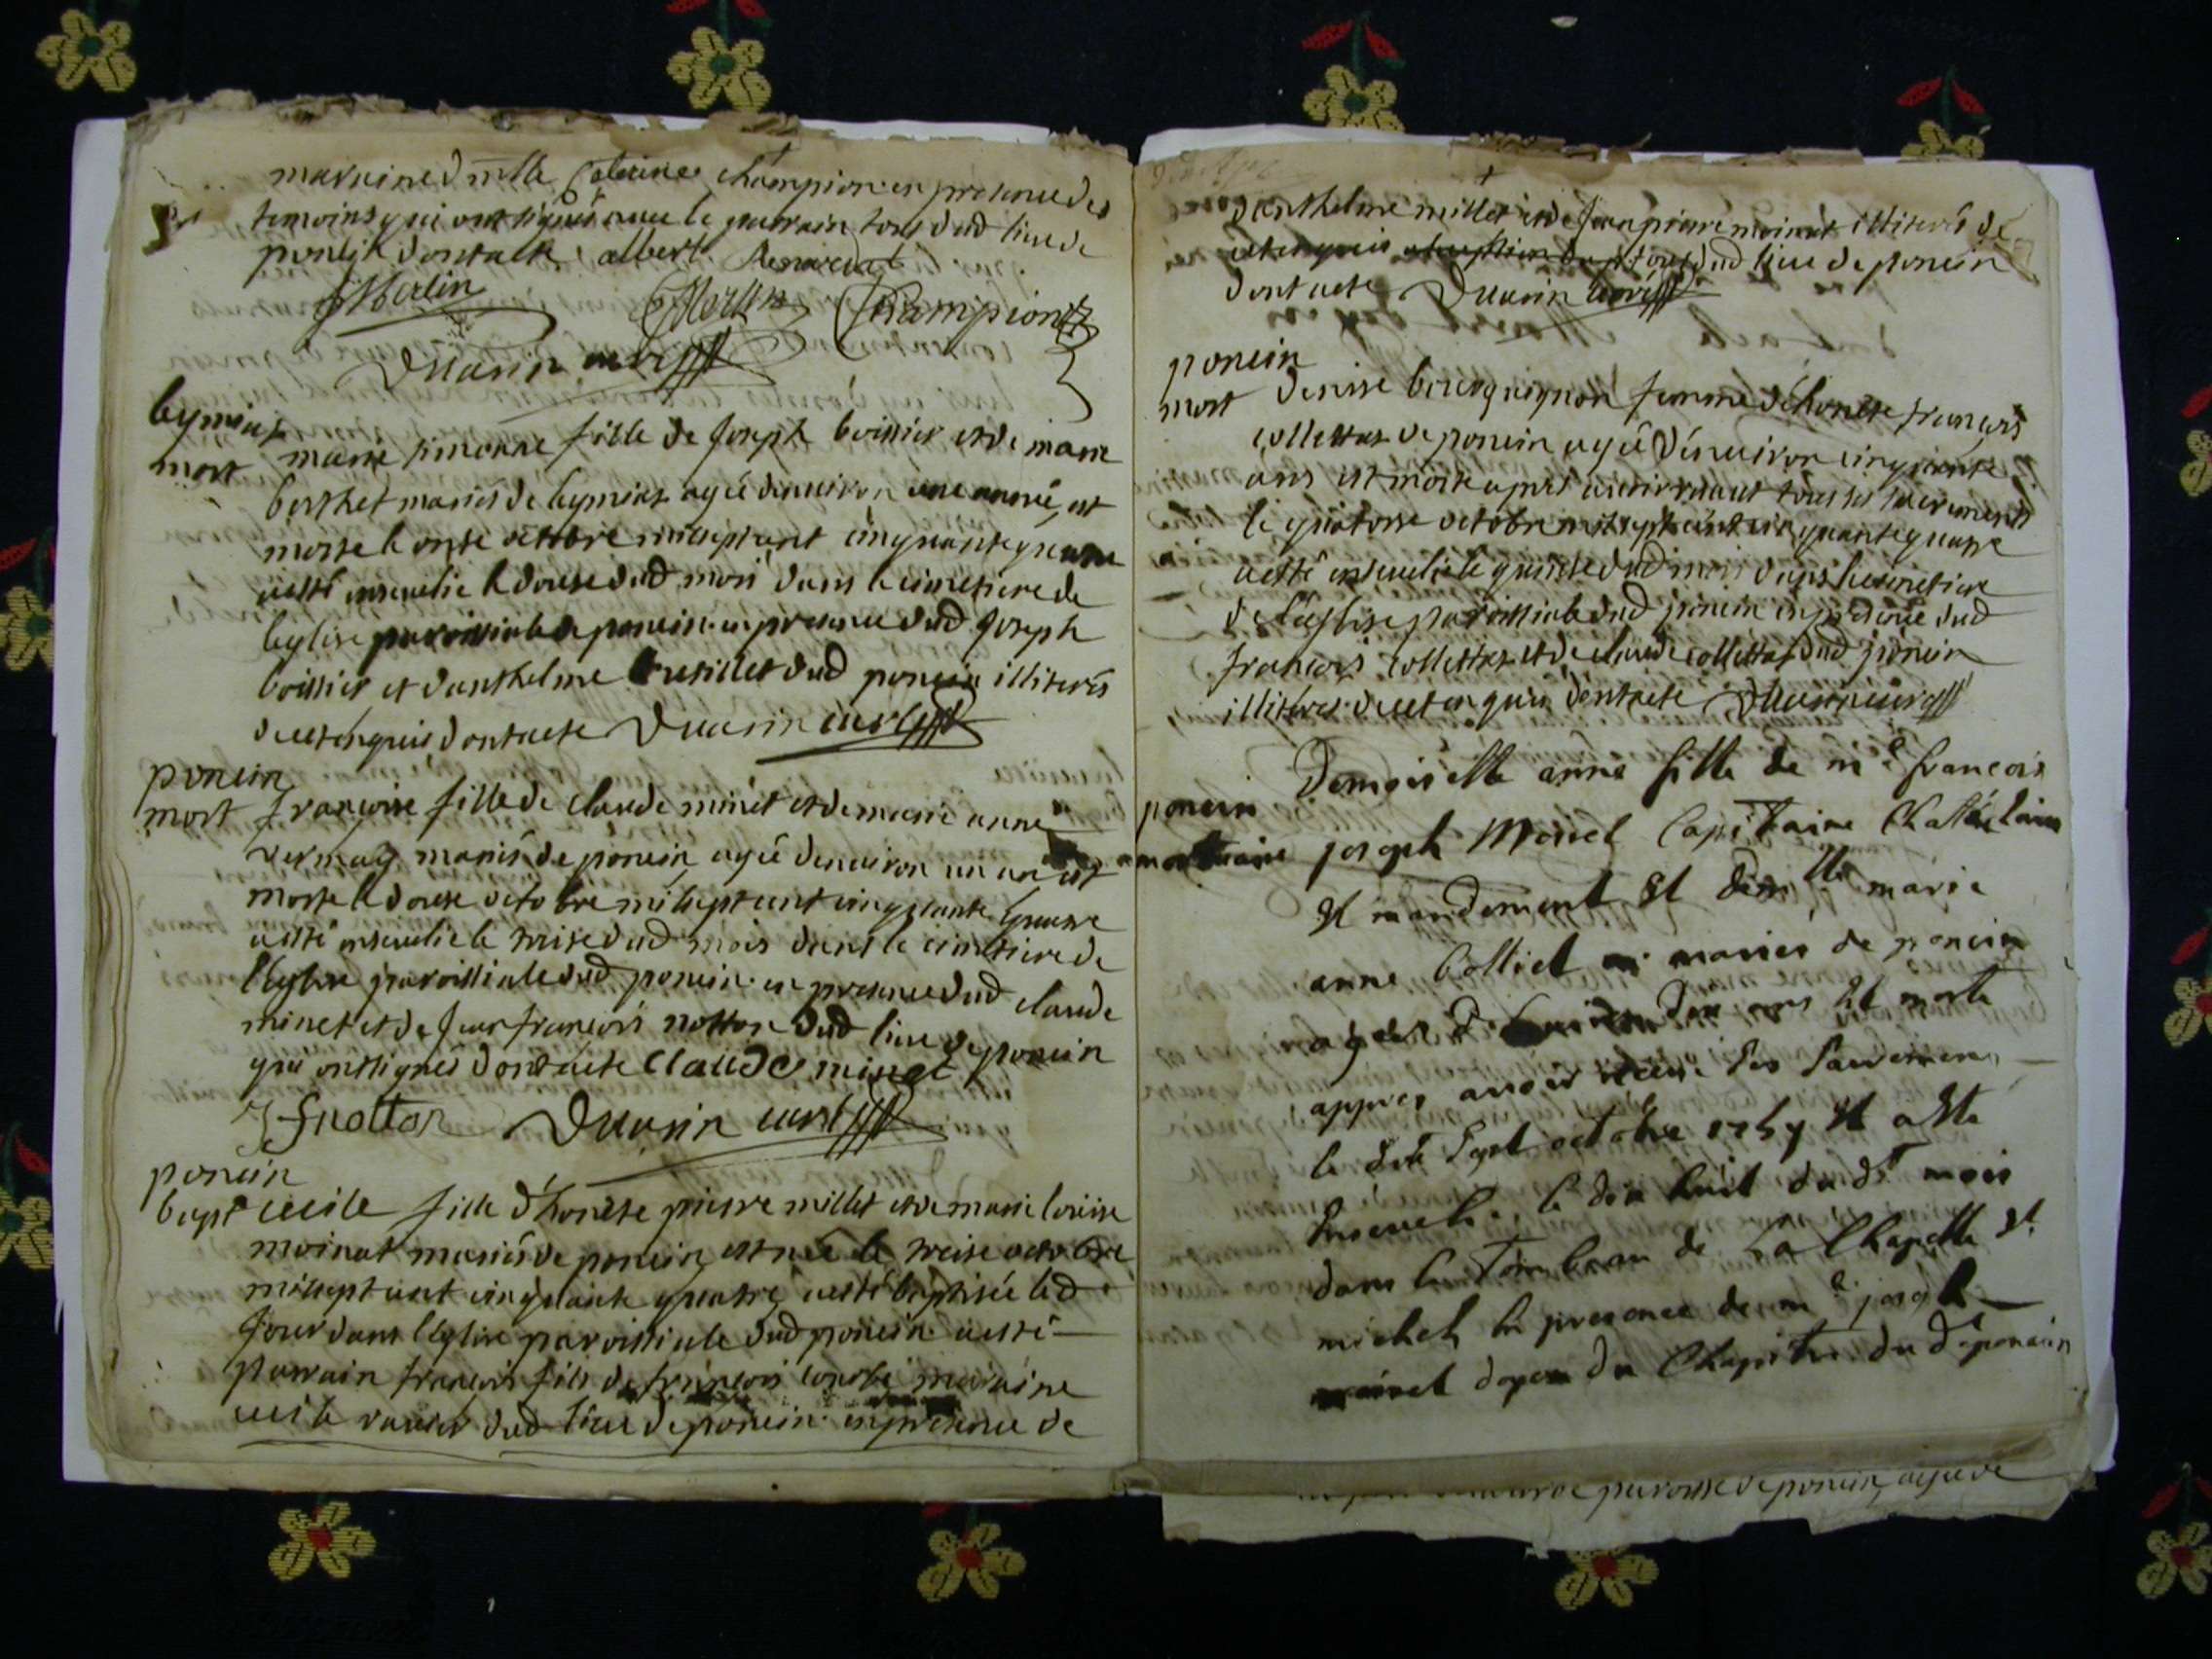 marraine dmlle Caterine champion en presence des
temoins qui ont signés avec le parrain tous dud lieu de
dont acte albert
Merlin Merlin Champion
Duarin curé
leymiat
mort
marie simonne fille de Joseph boissier et de marie
berthet mariés de leymiat agée denviron une année est
morte le onse octobre mil sept cent cinquante quatre
aesté ensevelie le douse dud mois dans le cimetiere de
leglise paroissiale de poncin en presence dud Joseph
boissier et danthelme dud poncin illiterés
de ce enquis dont acte Duarin curé
poncin
mort
françoise fille de claude minet et de marie anne
mariés de poncin agée denviron un an est
morte le douse octobre mil sept cent cinquante quatre
aesté ensevelie le treise dud mois dans le cimetiere de
l'eglise paroissiale dud poncin en presence dud claude
minet et de Jean françois notton dud lieu de poncin
qui ont signés dont acte Claude minet
J f notton Duarin curé
poncin
bapt
cecile fille d'honeste pierre millet et de marie louise
moinat mariés de poncin est née le treise octobre
mil sept cent cinquante quatre aesté baptisée led
Jour dans l'eglise paroissiale dud poncin aesté
parrain françois fils de françois marraine
cecile dud lieu de poncin en presence de
danthelme millet et de Jean pierre moinat illiterés de
ce enquis tous dud lieu de poncin
dont acte Duarin curé
poncin
mort
denise bourguignon femme d'honeste françois
collettaz de poncin agée d'environ cinquante
ans est morte apres avoir receut tous ses sacrements
le quatorse octobre mil sept cent cinquante quatre
aesté ensevelie le quinse dud mois dans le cimetiere
de l'eglise paroissiale dud poncin en presence dud
françois collettaz et de claude collettaz dud poncin
illiterés de ce enquis dont acte Duarin curé
poncin
mortuaire
Demoiselle anne fille de me françois
joseph Moinel Capitaine Chattelain
et mandement et demlle marie
anne Colliet mariés de poncin
agée d ans et morte
appres avoir ses sacremens
le dix sept octobre 1754 et a este
ensevelie le dix huit du dt mois
dans le Tombeau de La Chapelle st
michel en presence de me joseph
doyen du Chapitre du dt poncin
paroisse de poncin agée de